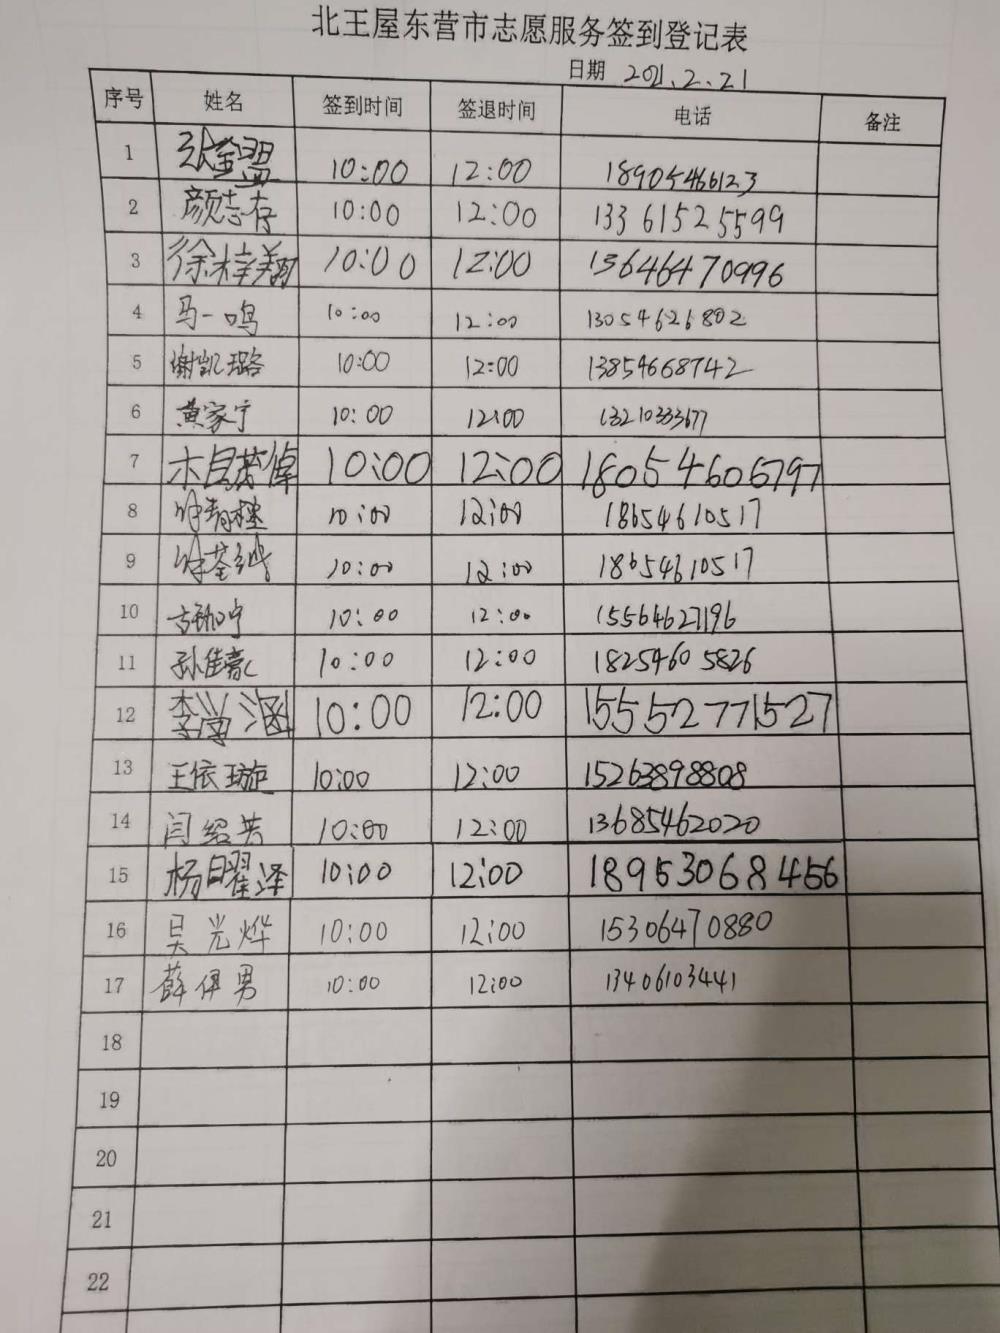 北王屋东营市志愿服务签到登记表
日期 2021.2.21
序号 姓名 签到时间 签退时间 电话 备注
1 张金盟 10:00 12:00 18905466123
2 颜志存 10:00 12:00 13361525599
3 徐梓翔 10:00 12:00 13646470996
4 马一鸣 10:00 12:00 13054626802
5 谢凯璐 10:00 12:00 13854668742
6 黄家宁 10:00 12:00 13210333677
7 10:00 12:00 18054606797
8 10:00 12:00 18654610517
9 10:00 12:00 18654610517
10 10:00 12:00 15564627196
11 孙佳豪 10:00 12:00 18254605826
12 李学涵 10:00 12:00 15552771527
13 王依璇 10:00 12:00 15263898808
14 闫绍芸 10:00 12:00 13685462020
15 杨曜泽 10:00 12:00 18953068456
16 吴光烨 10:00 12:00 15306470880
17 薛伊男 10:00 12:00 13406103441
18
19
20
21
22